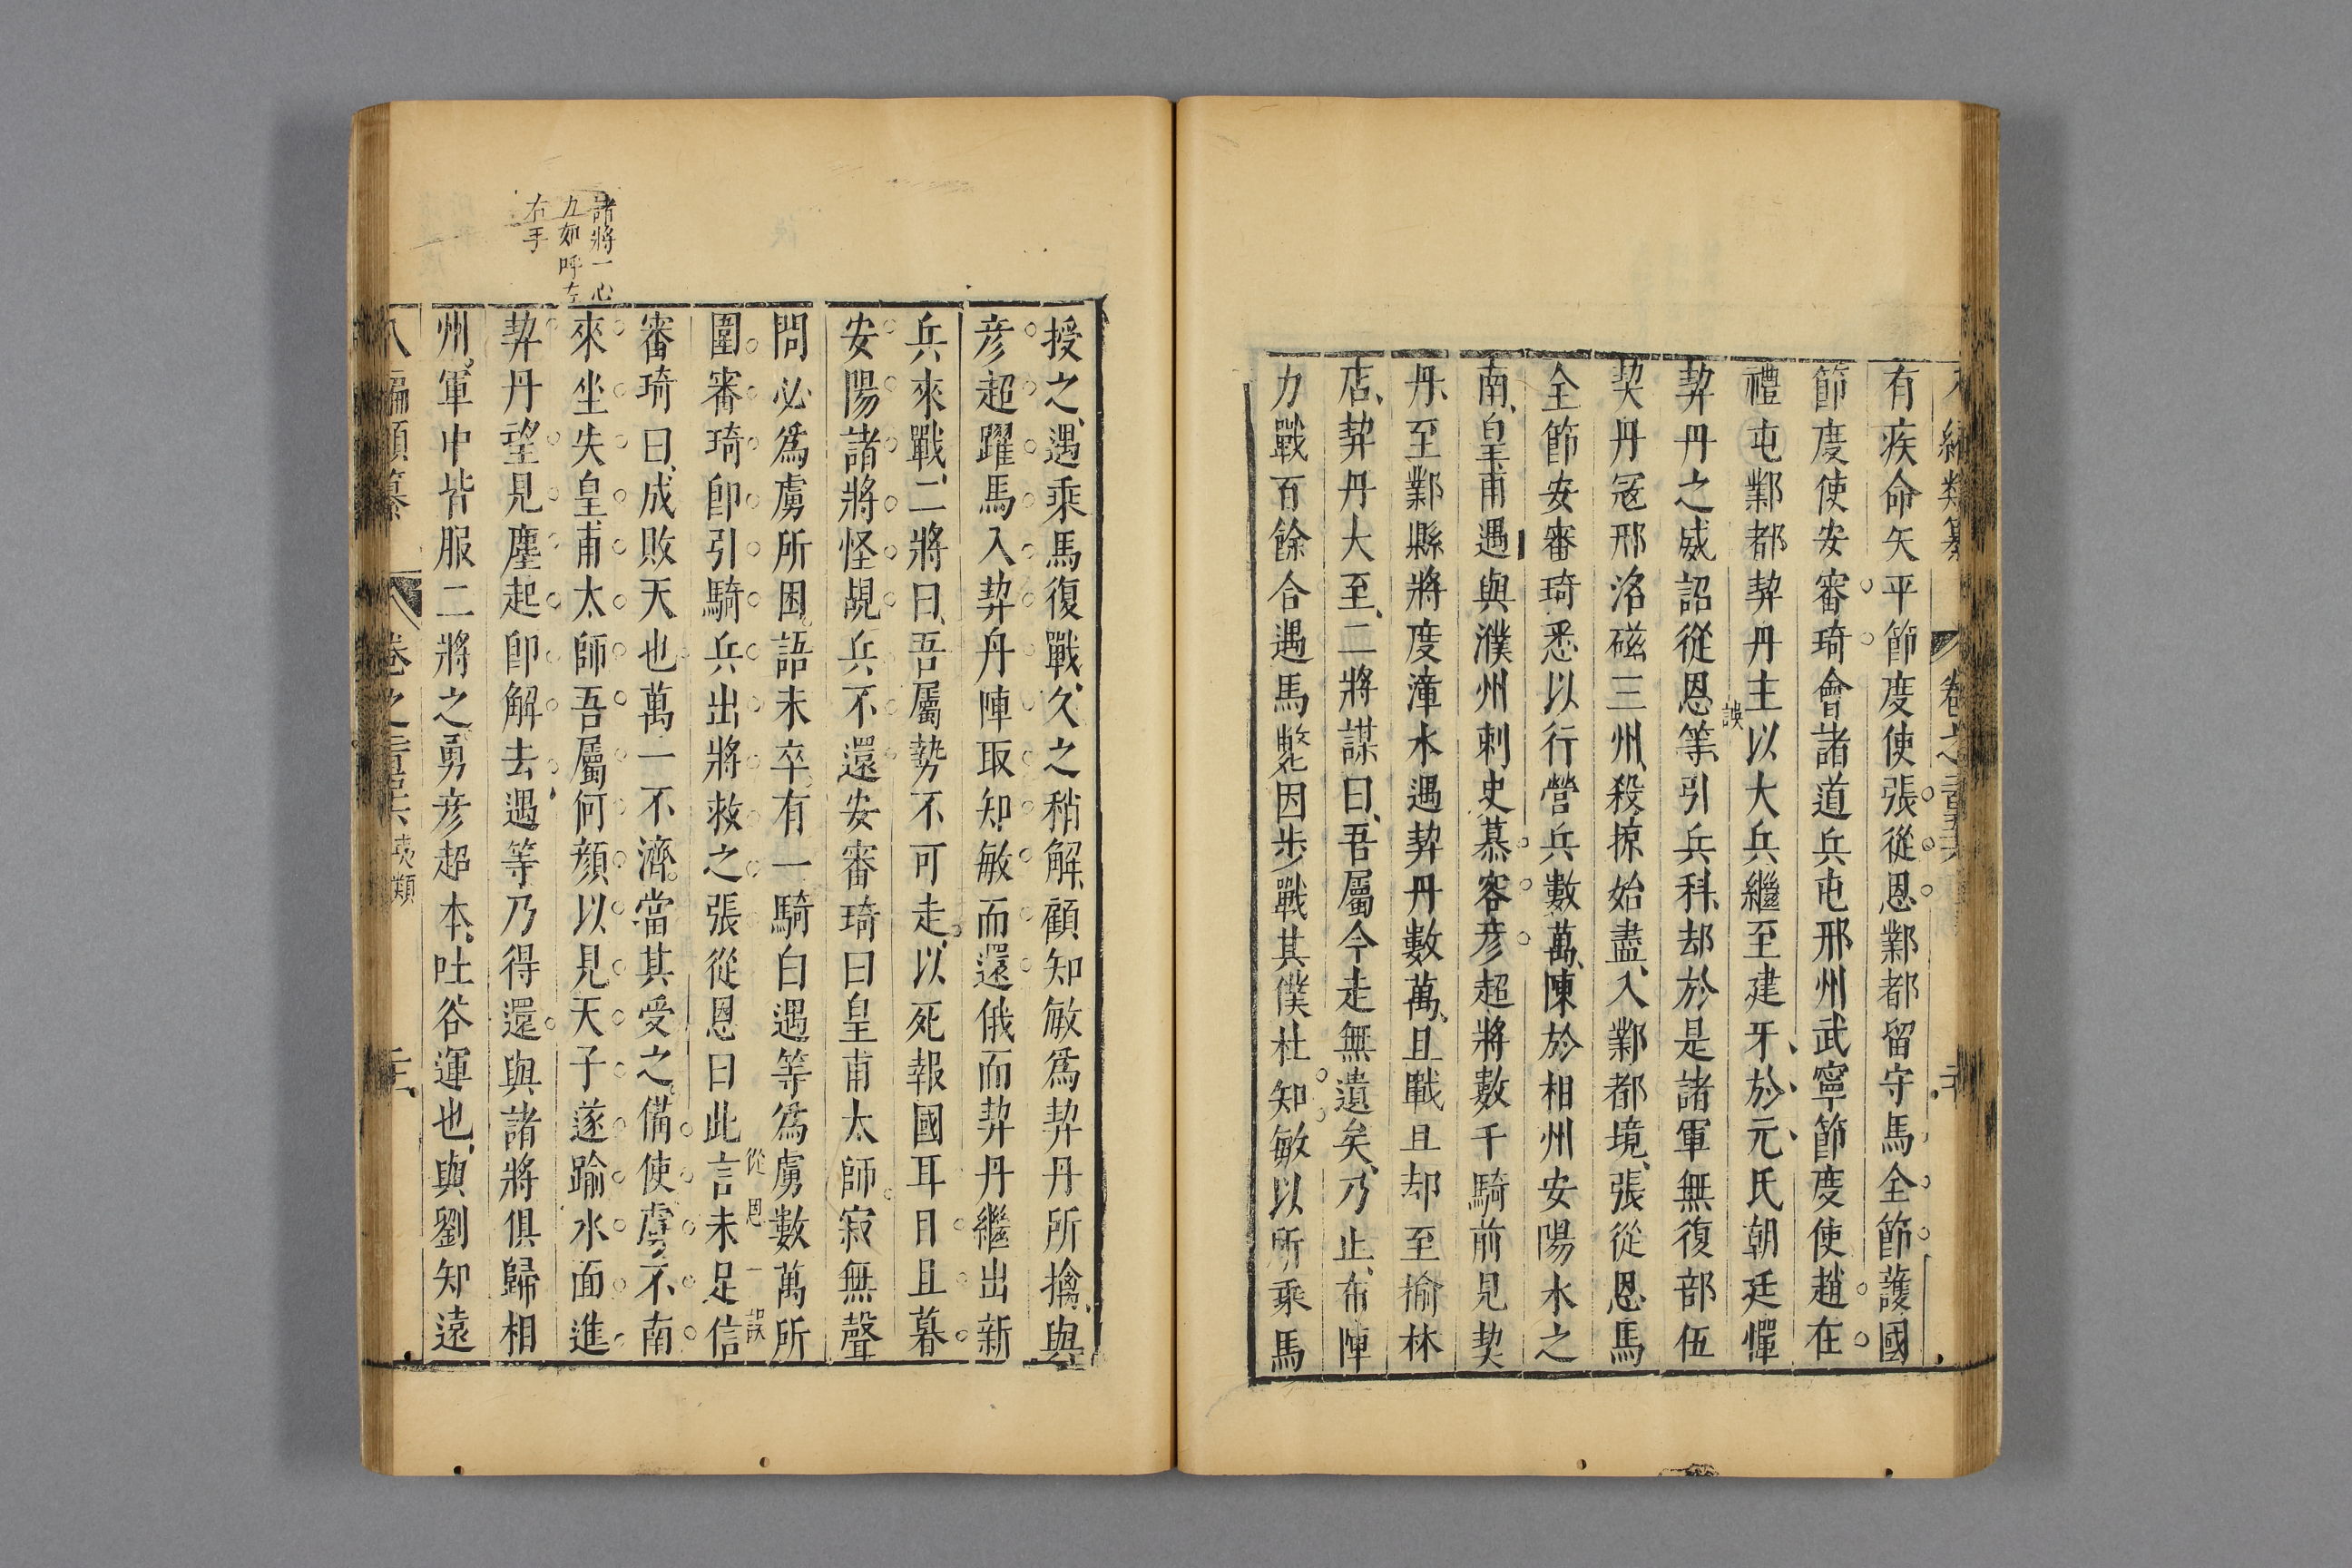 有疾命矢平節度使張從恩鄴都留守馬全節護國
節度使安審琦會諸道兵屯邢州武寧節度使趙在
禮屯鄴都契丹主以大兵繼至建牙於元氏朝廷憚
契丹之威詔從恩等引兵科却於是諸軍無復部伍
誤
契丹冦邢洛磁三州殺掠始盡入鄴都境張從恩馬
全節安審琦悉以行營兵數萬陳於相州安陽水之
南皇甫遇與濮州刺史慕容彦超將數千騎前見契
丹至鄴縣將度漳水遇契丹數萬且戰且却至揄林
店契丹大至二將謀曰吾屬今走無遺矣乃止布陣
力戰百餘合遇馬斃因步戰其僕杜知敏以所乘馬
授之遇乘馬復戰久之稍解顧知敏爲契丹所擒與
彦超躍馬入契丹陣取知敏而還俄而契丹繼出新
兵來戰二將曰吾屬勢不可走以死報國耳日且暮
安陽諸將怪覘兵不還安審琦曰皇甫太師寂無聲
問必爲虜所困語未卒有一騎白遇等爲虜數萬所
圍審琦卽引騎兵出將救之張從恩曰此言未足信
從恩一誤
審琦曰成敗天也萬一不濟當其受之借使虜不南
來坐失皇甫太師吾屬何顔以見天子遂踰水面進
契丹望見塵起卽解去遇等乃得還與諸將俱歸相
州軍中皆服二將之勇彦超本吐谷運也與劉知遠
諸將一心
九如呼左
右手